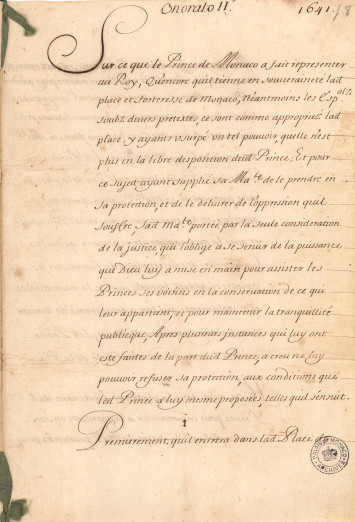 Onorato II.
1641.
Sur ce que le Prince de Monaco a fait representer
au Roy, Qu'encore qu'il tienne en souveraineté lad
place et forteresse de Monaco, Neantmoins les Espolz
soubz divers pretextes, se sont comme appropriez lad
place, y ayants usurpé un tel pouvoir, quelle n'est
plus en la libre disposition dud Prince; Et pour
ce sujet ayant supplié sa Ma.te de le prendre en
sa protection, et de le delivrer de l'oppression qu'il
souffre, sad Ma.te portée par la seule consideration
de la justice, qui l'oblige a se servir de la puissance
que Dieu luy a mise en main pour assister les
Princes ses voisins en la conservation de ce qui
leur appartient, et pour maintenir la tranquillité
publique, Apres plusieurs instances qui luy ont
esté faites de la part dud Prince, a creu ne luy
pouvoir refuser sa protection, aux conditions que
led Prince a luy mesme proposées, telles qu'il s'ensuit.
1
Premierement, qu'il entrera dans lad Place de